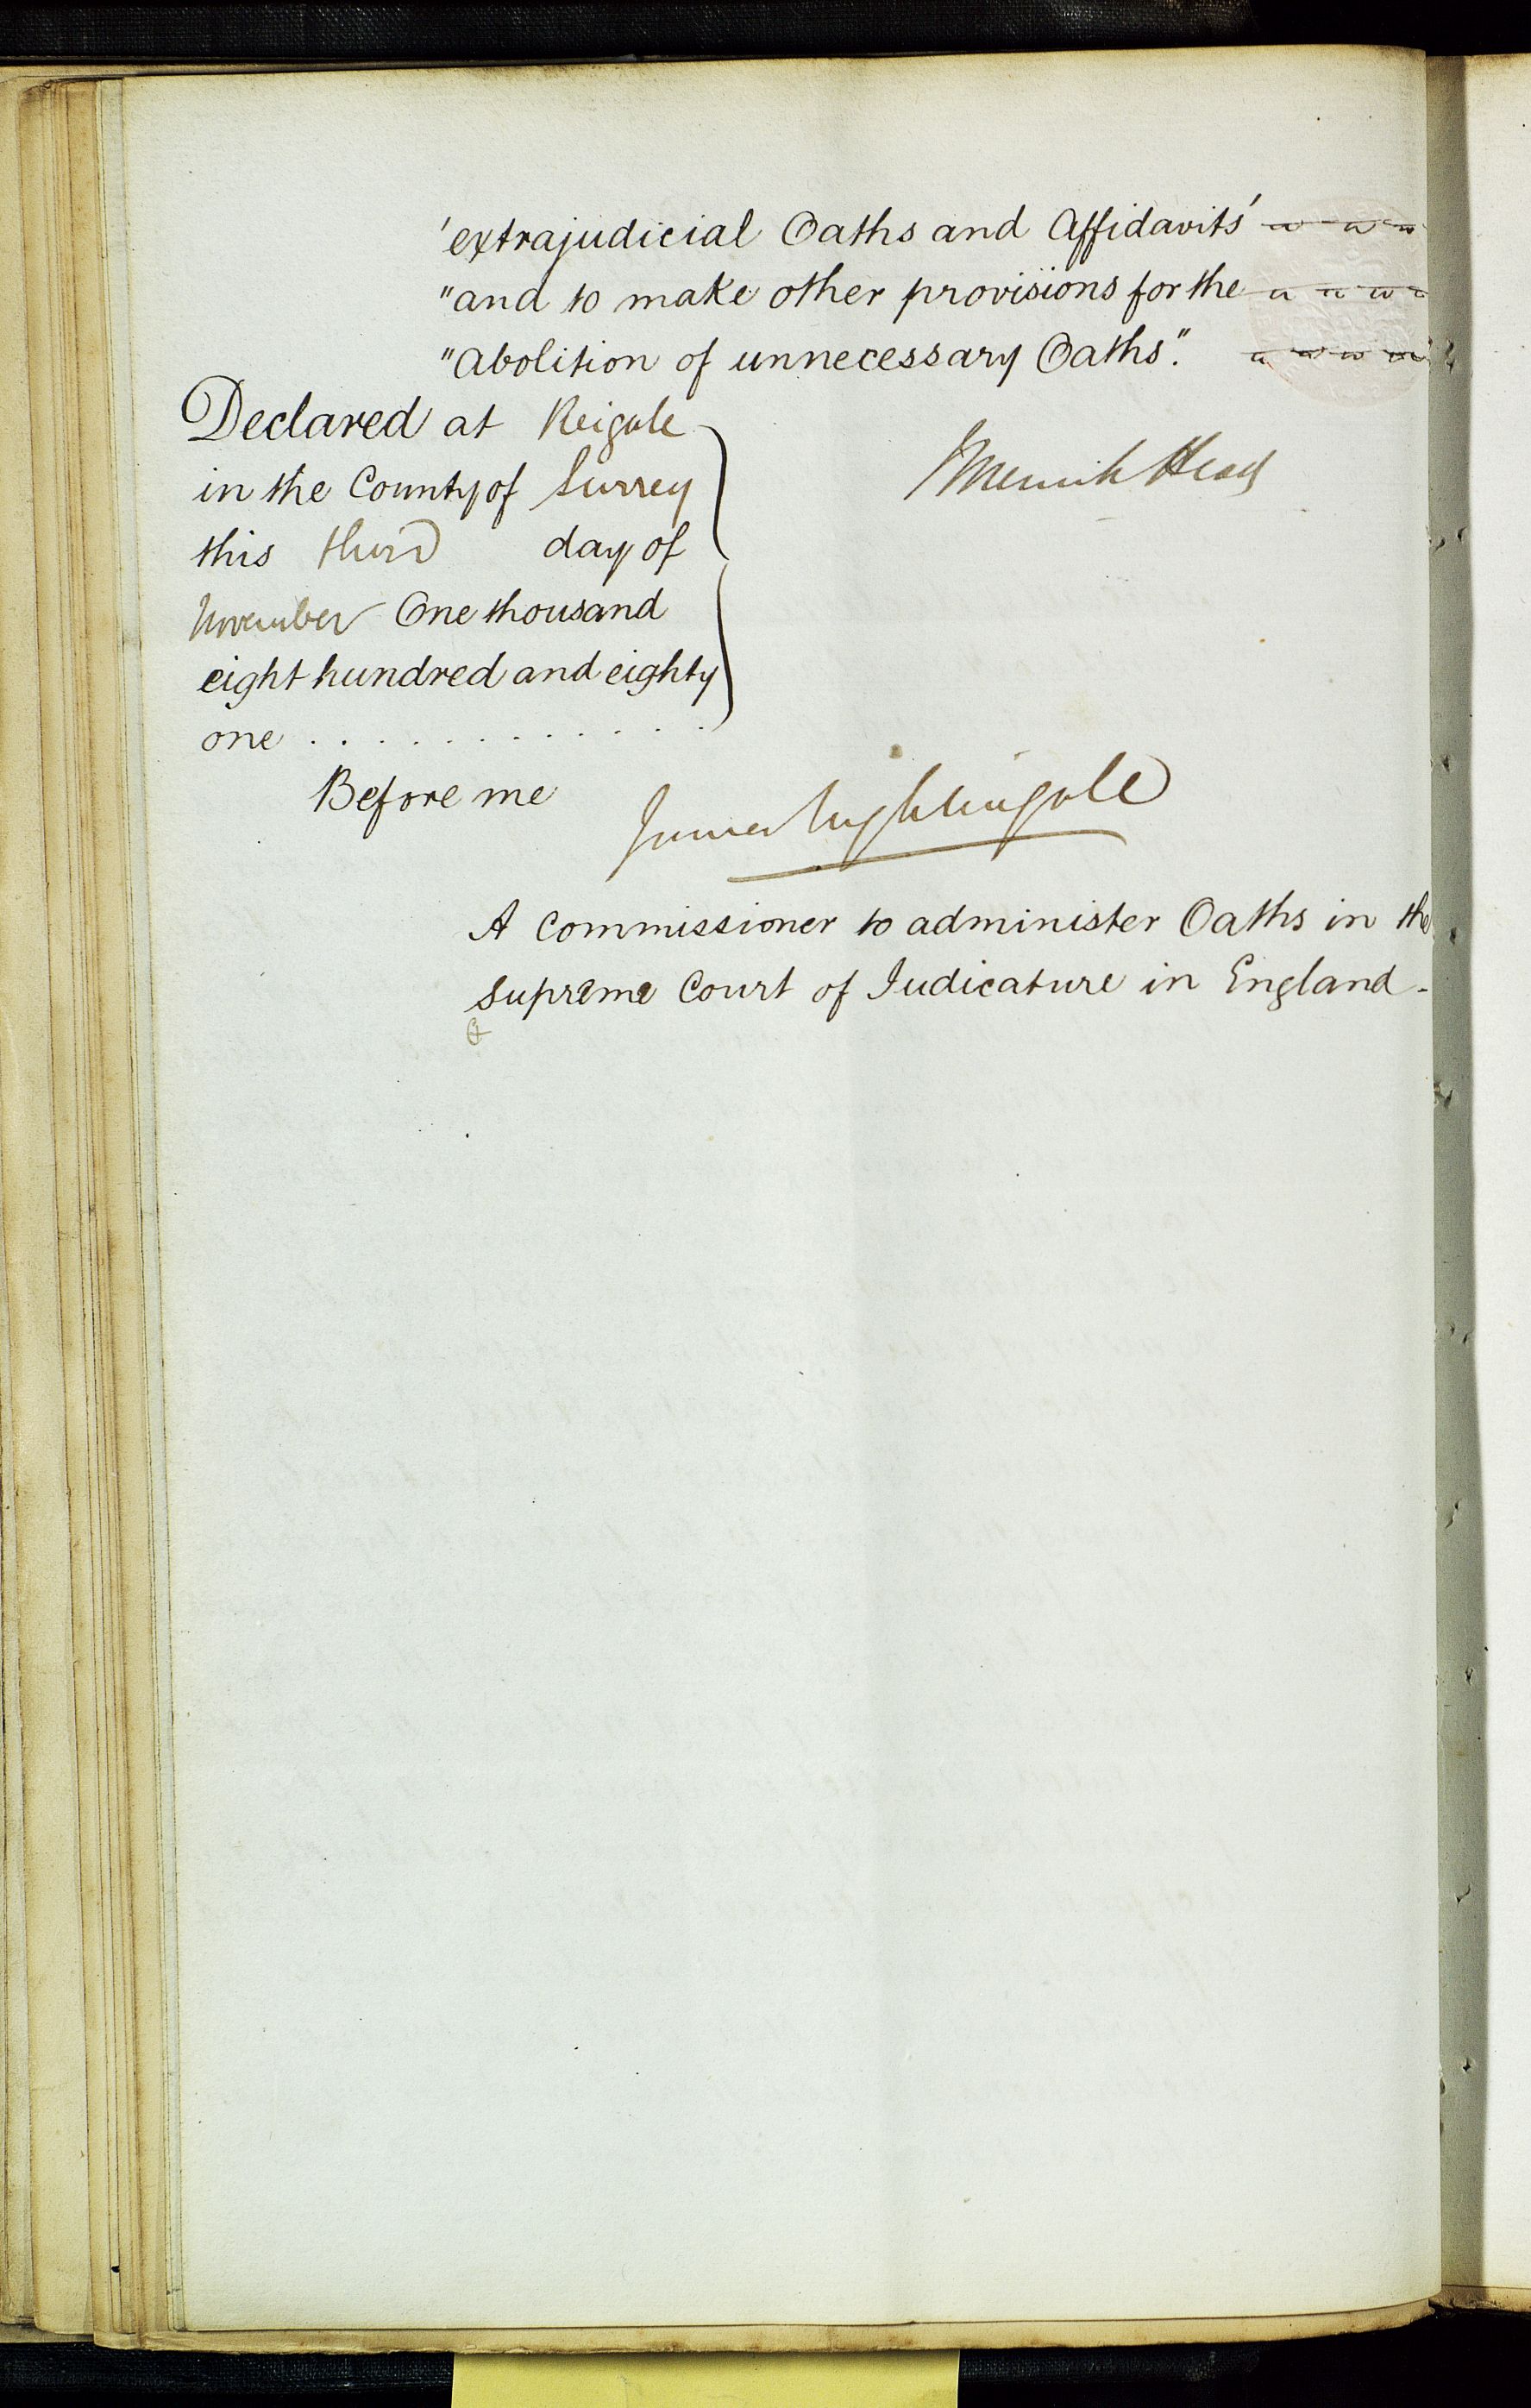 'extrajudicial Oaths and Affidavits'
"and to make other provisions for the
"Abolition of unnecessary Oaths".
Declared at Reigate
in the County of Surrey
this third day of
November One thousand
eight hundred and eighty
one . . . . . . . . . . . . .
Before me
Head
James Nightingale
A Commissioner to administer Oaths in the
Supreme Court of Judicature in England.